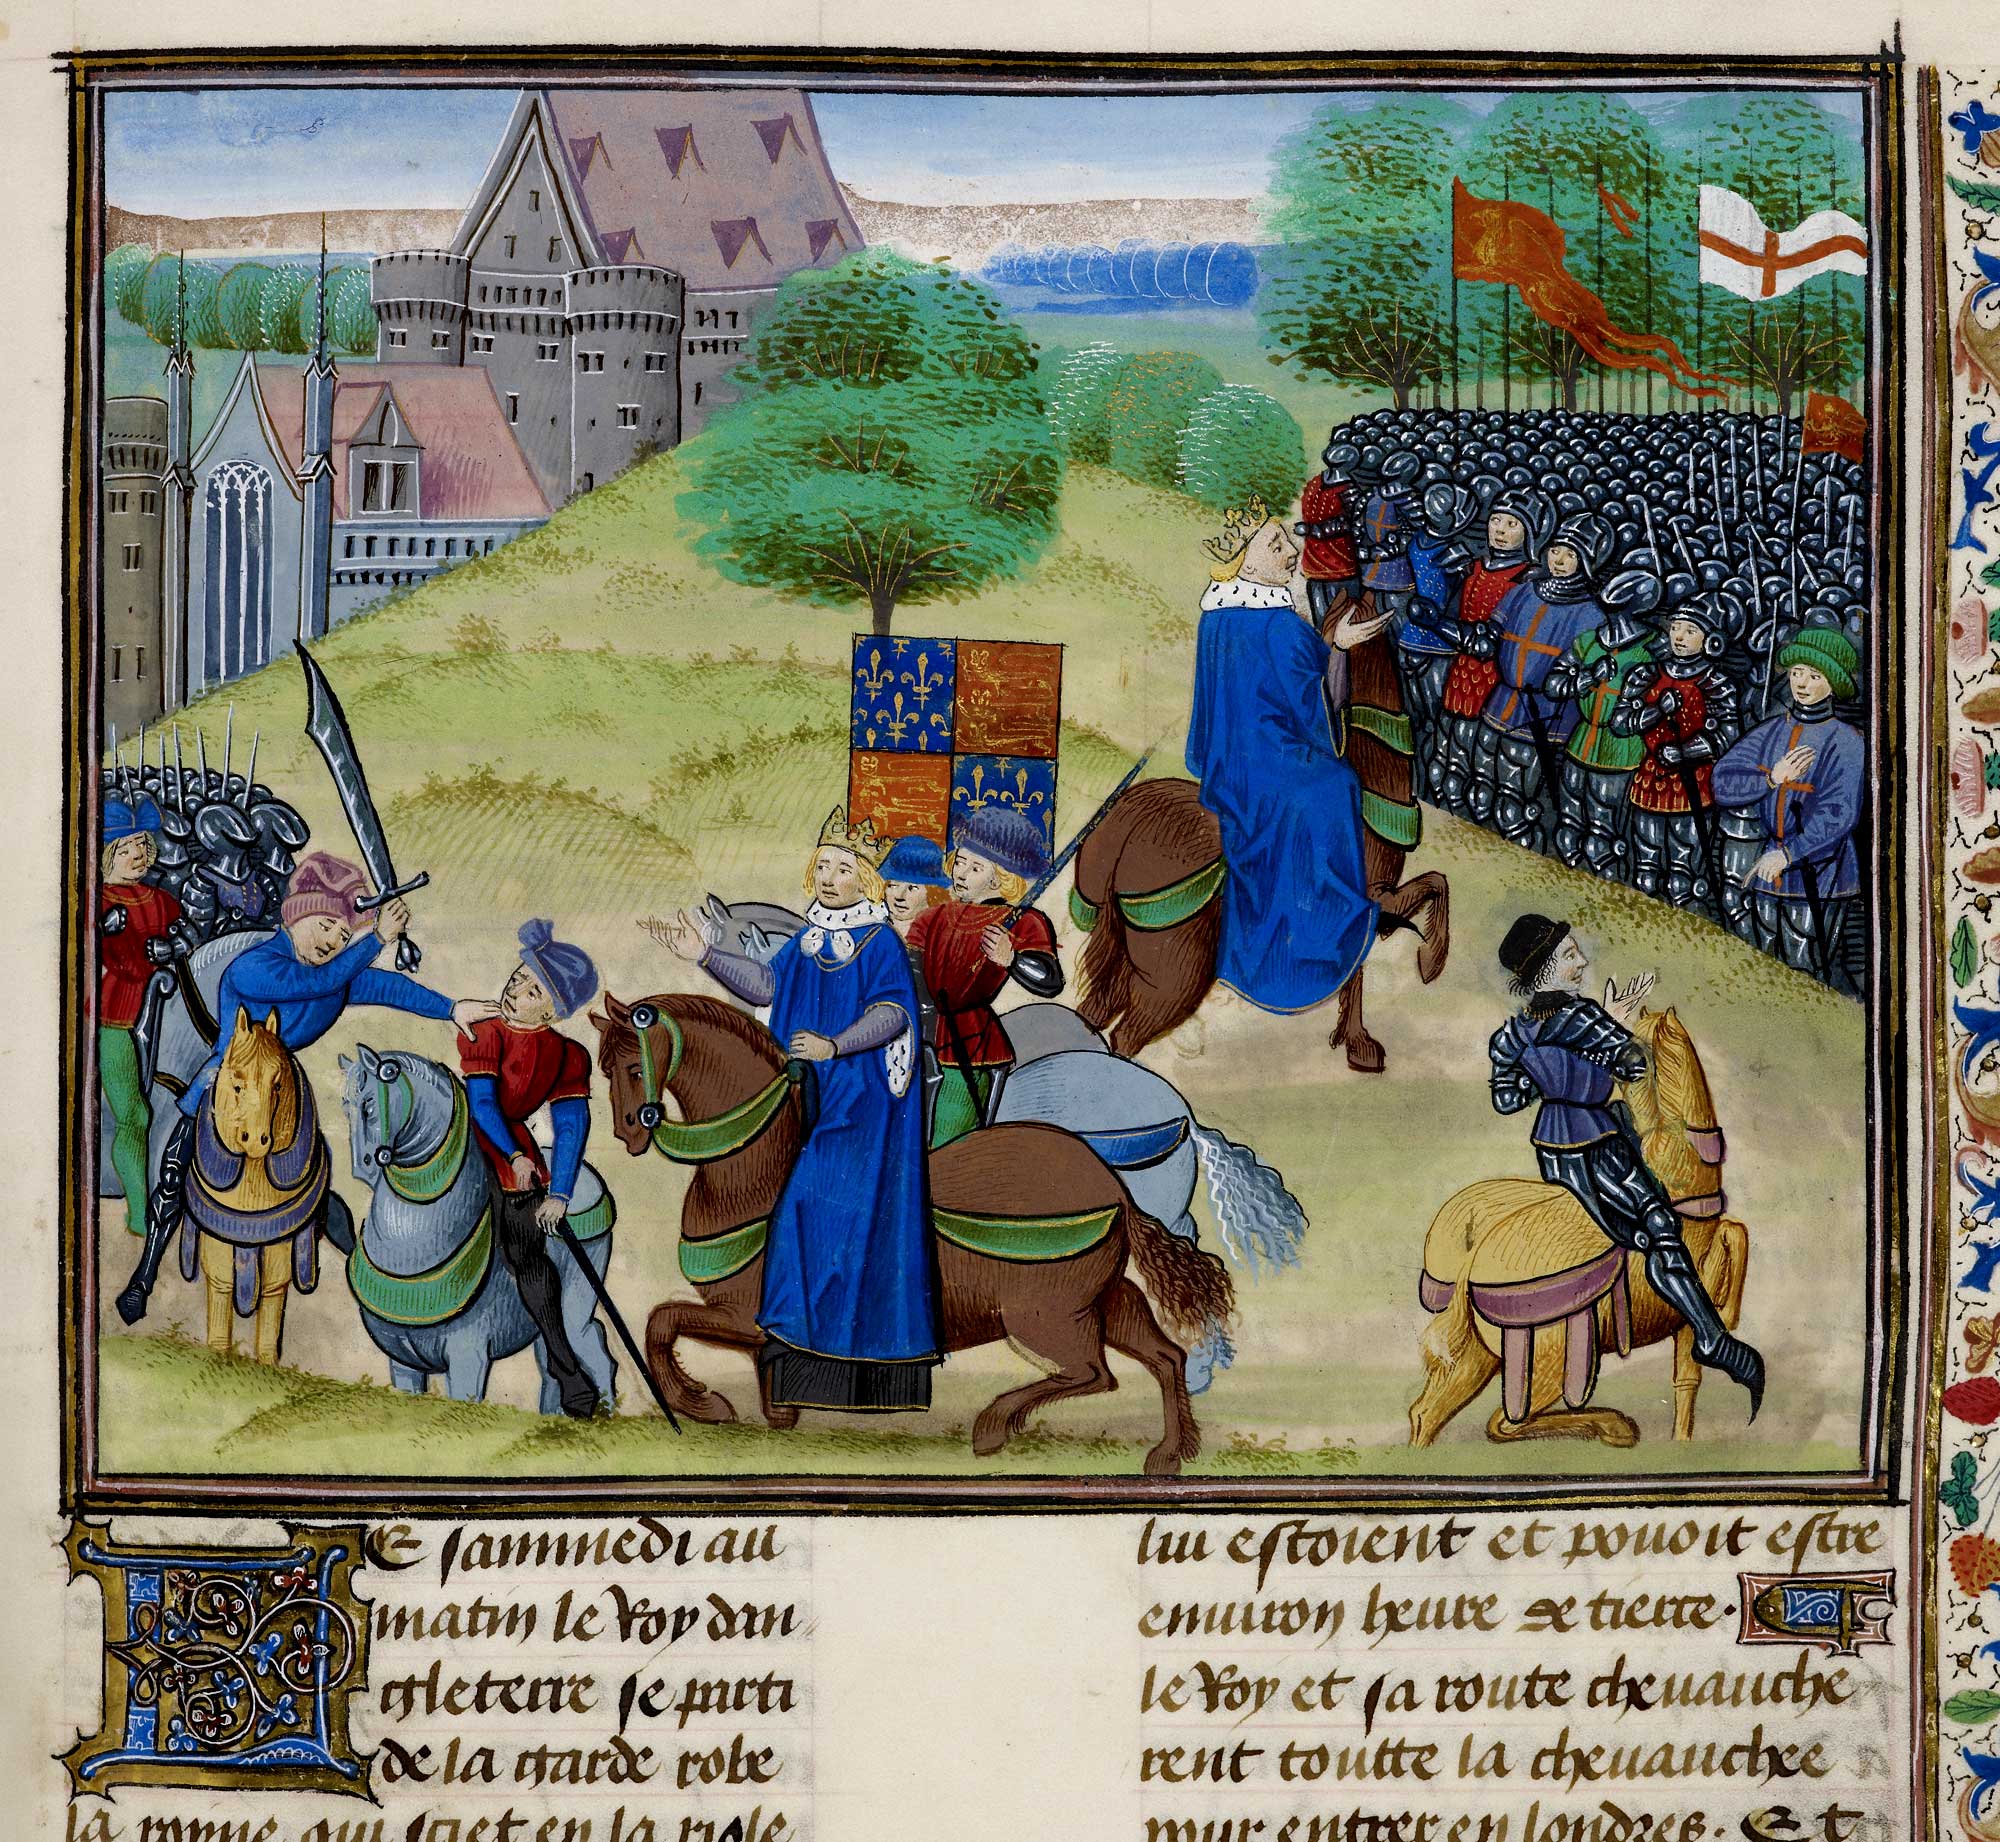 LE sammedi au
matin le Roy dan
gleterre se parti
de la garde robe
la royne qui siet en la riole
lui estoient et pouoit estre
enuiron heure de tierce. Et
le Roy et sa route cheuauche
rent toutte la cheuauchee
pour entrer en londres. Et